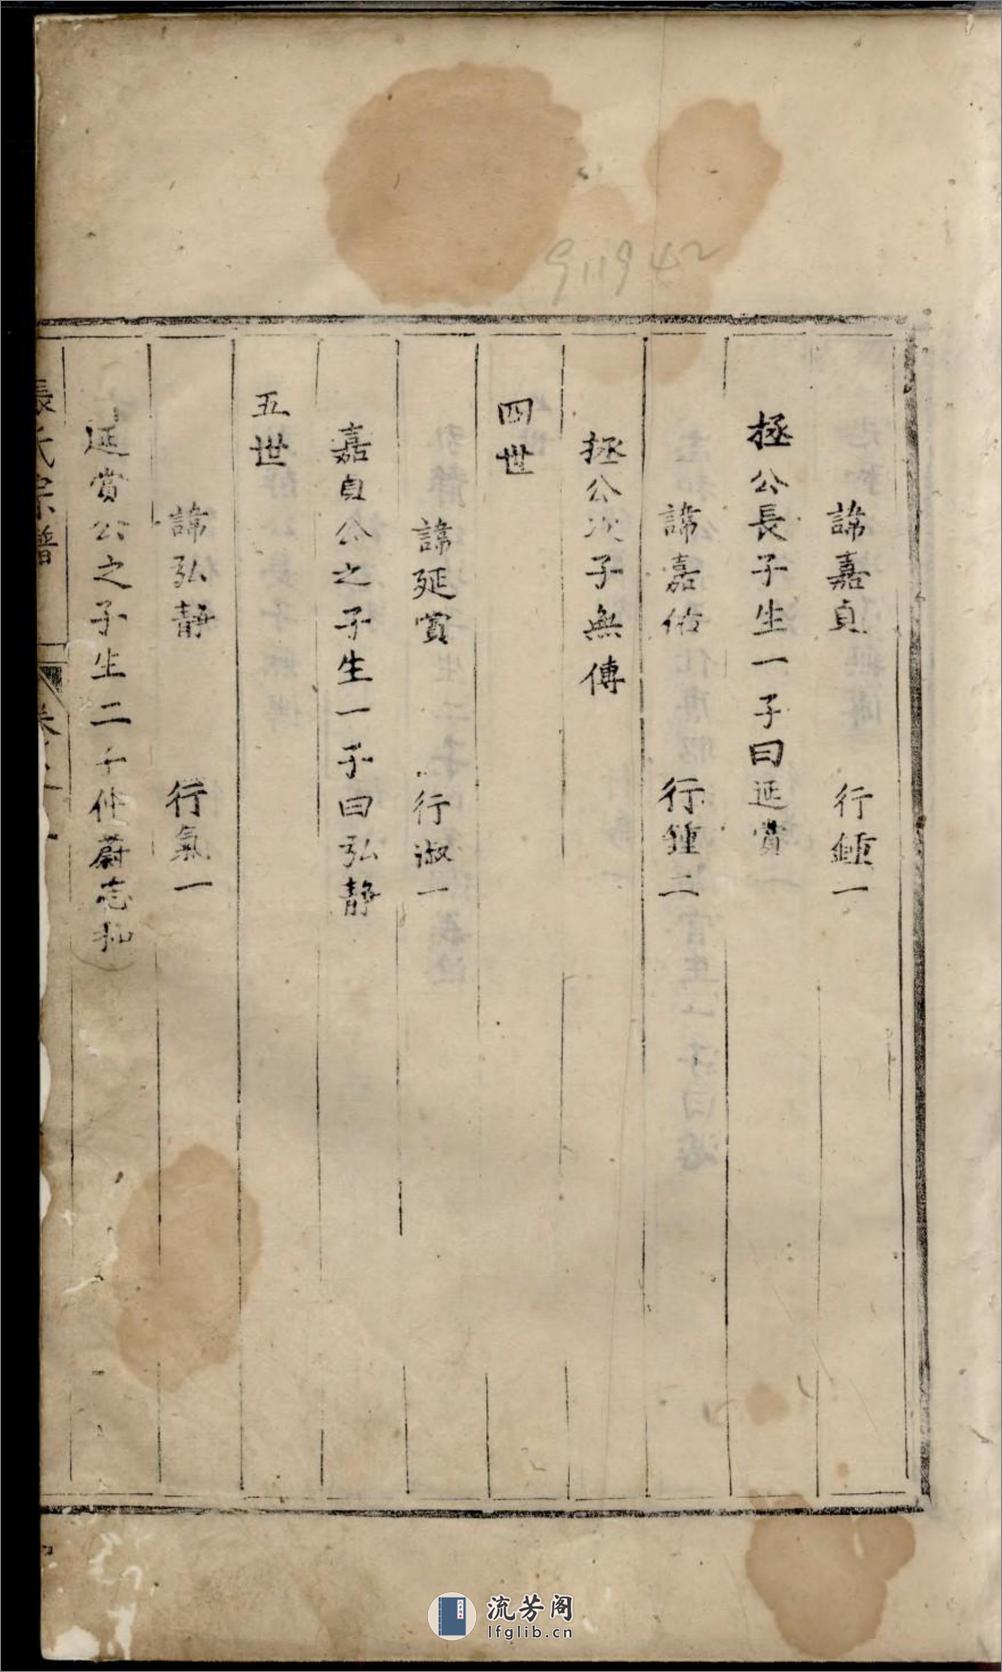 911942
諱嘉貞 行鍾一
拯公長子生一子曰延賞
諱嘉佑 行鍾二
拯公次子無傳
四世
諱延賞 行淑一
嘉貞公之子生一子曰弘静
五世
諱弘静 行氣一
延賞公之子生二子仲蔚志和
張氏宗譜
卷之
流芳阁
lfglib.cn